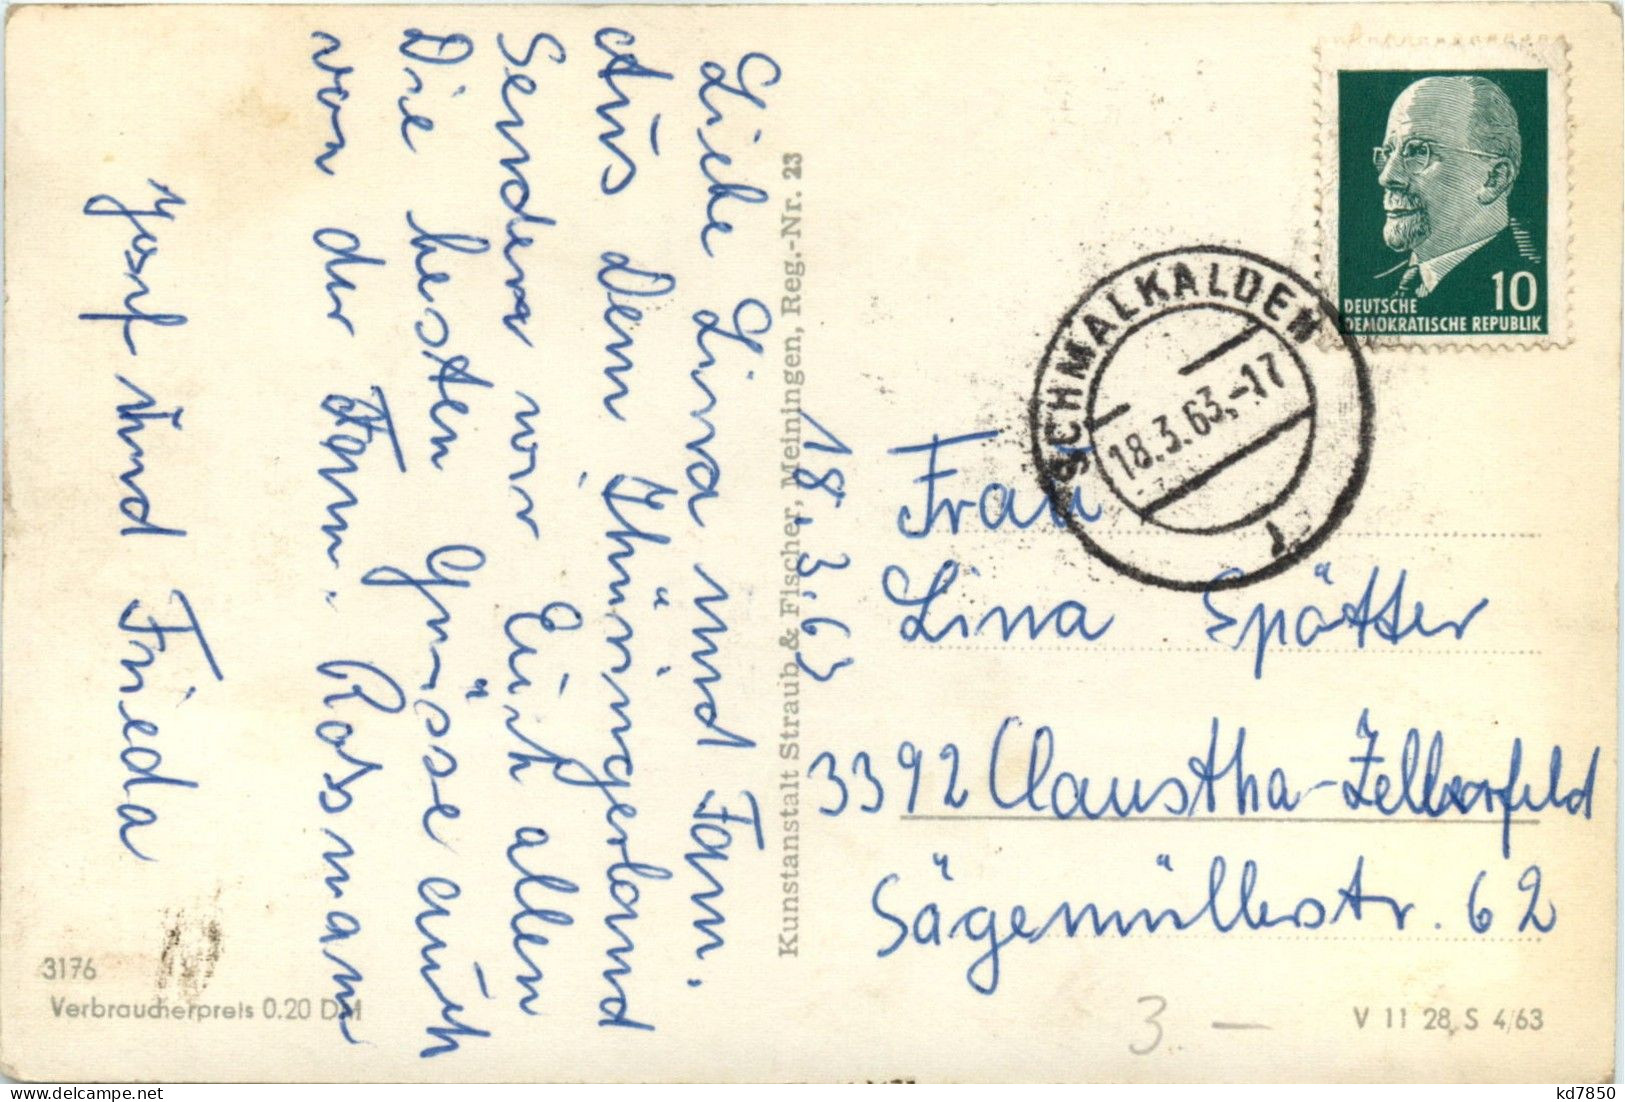 Liebe Lina und Fam.
Aus dem Thüringerland
Senden wir Euch allen
Die besten Grüsse auch
von der Fam. Rossmann
Josef und Frieda
18.3.63
Kunstanstalt Straub & Fischer, Meiningen, Reg.-Nr. 23
DEUTSCHE
DEMOKRATISCHE REPUBLIK
10
SCHMALKALDEN
18.3.63.-17
Frau
Lina Spötter
3392 Claustha-Zellerfeld
Sägemüllerstr. 62
3176
Verbraucherpreis 0.20 DM
3 –
V 11 28 S 4/63
kd7850